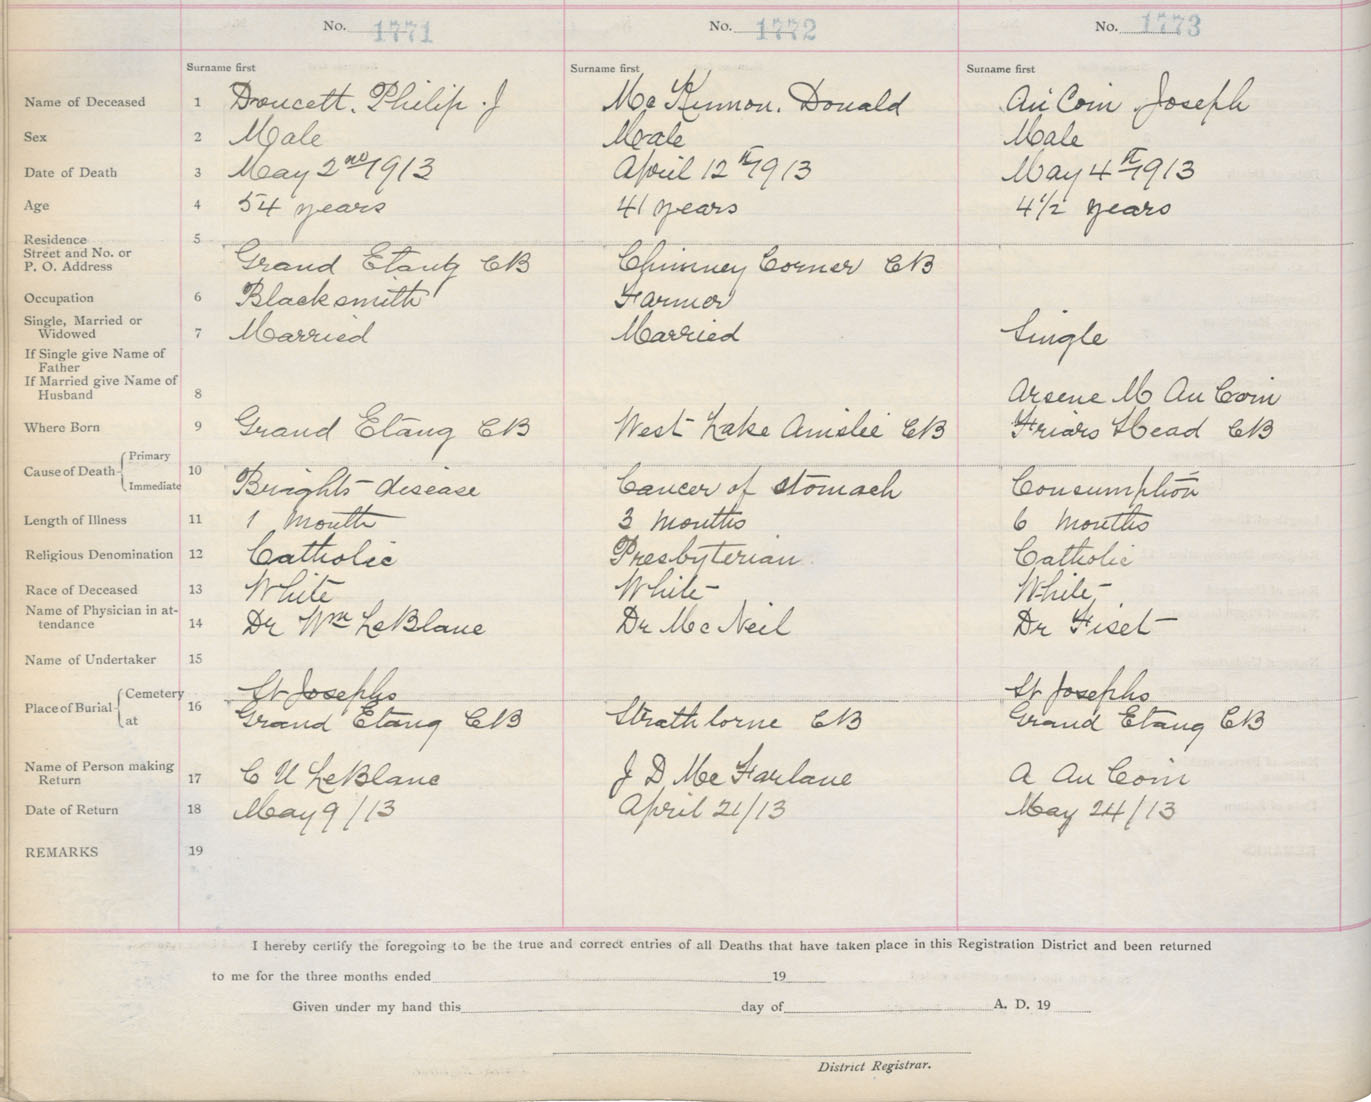 No. 1771 No. 1772 No. 1773
Surname first Surname first Surname first
Name of Deceased 1 Doucett. Philip. J McKinnon. Donald AuCoin Joseph
Sex 2 Male Male Male
Date of Death 3 May 2nd 1913 April 12th 1913 May 4th 1913
Age 4 54 years 41 years 4½ years
Residence 5
Street and No. or
P. O. Address Grand Etang CB Chimney Corner CB
Occupation 6 Blacksmith Farmer
Single, Married or
Widowed 7 Married Married Single
If Single give Name of
Father
If Married give Name of
Husband 8 Arsene M AuCoin
Where Born 9 Grand Etang CB West Lake Ainslie CB Friars Head CB
Cause of Death Primary 10
Immediate Brights disease Cancer of stomach Consumption
Length of Illness 11 1 month 3 months 6 months
Religious Denomination 12 Catholic Presbyterian Catholic
Race of Deceased 13 White White White
Name of Physician in at-
tendance 14 Dr Wm LeBlanc Dr McNeil Dr Fiset
Name of Undertaker 15
Place of Burial Cemetery 16 St Josephs St Josephs
at Grand Etang CB Strathlorne CB Grand Etang CB
Name of Person making
Return 17 C U LeBlanc J D McFarlane A AuCoin
Date of Return 18 May 9/13 April 21/13 May 24/13
REMARKS 19
I hereby certify the foregoing to be the true and correct entries of all Deaths that have taken place in this Registration District and been returned
to me for the three months ended 19
Given under my hand this day of A. D. 19
District Registrar.